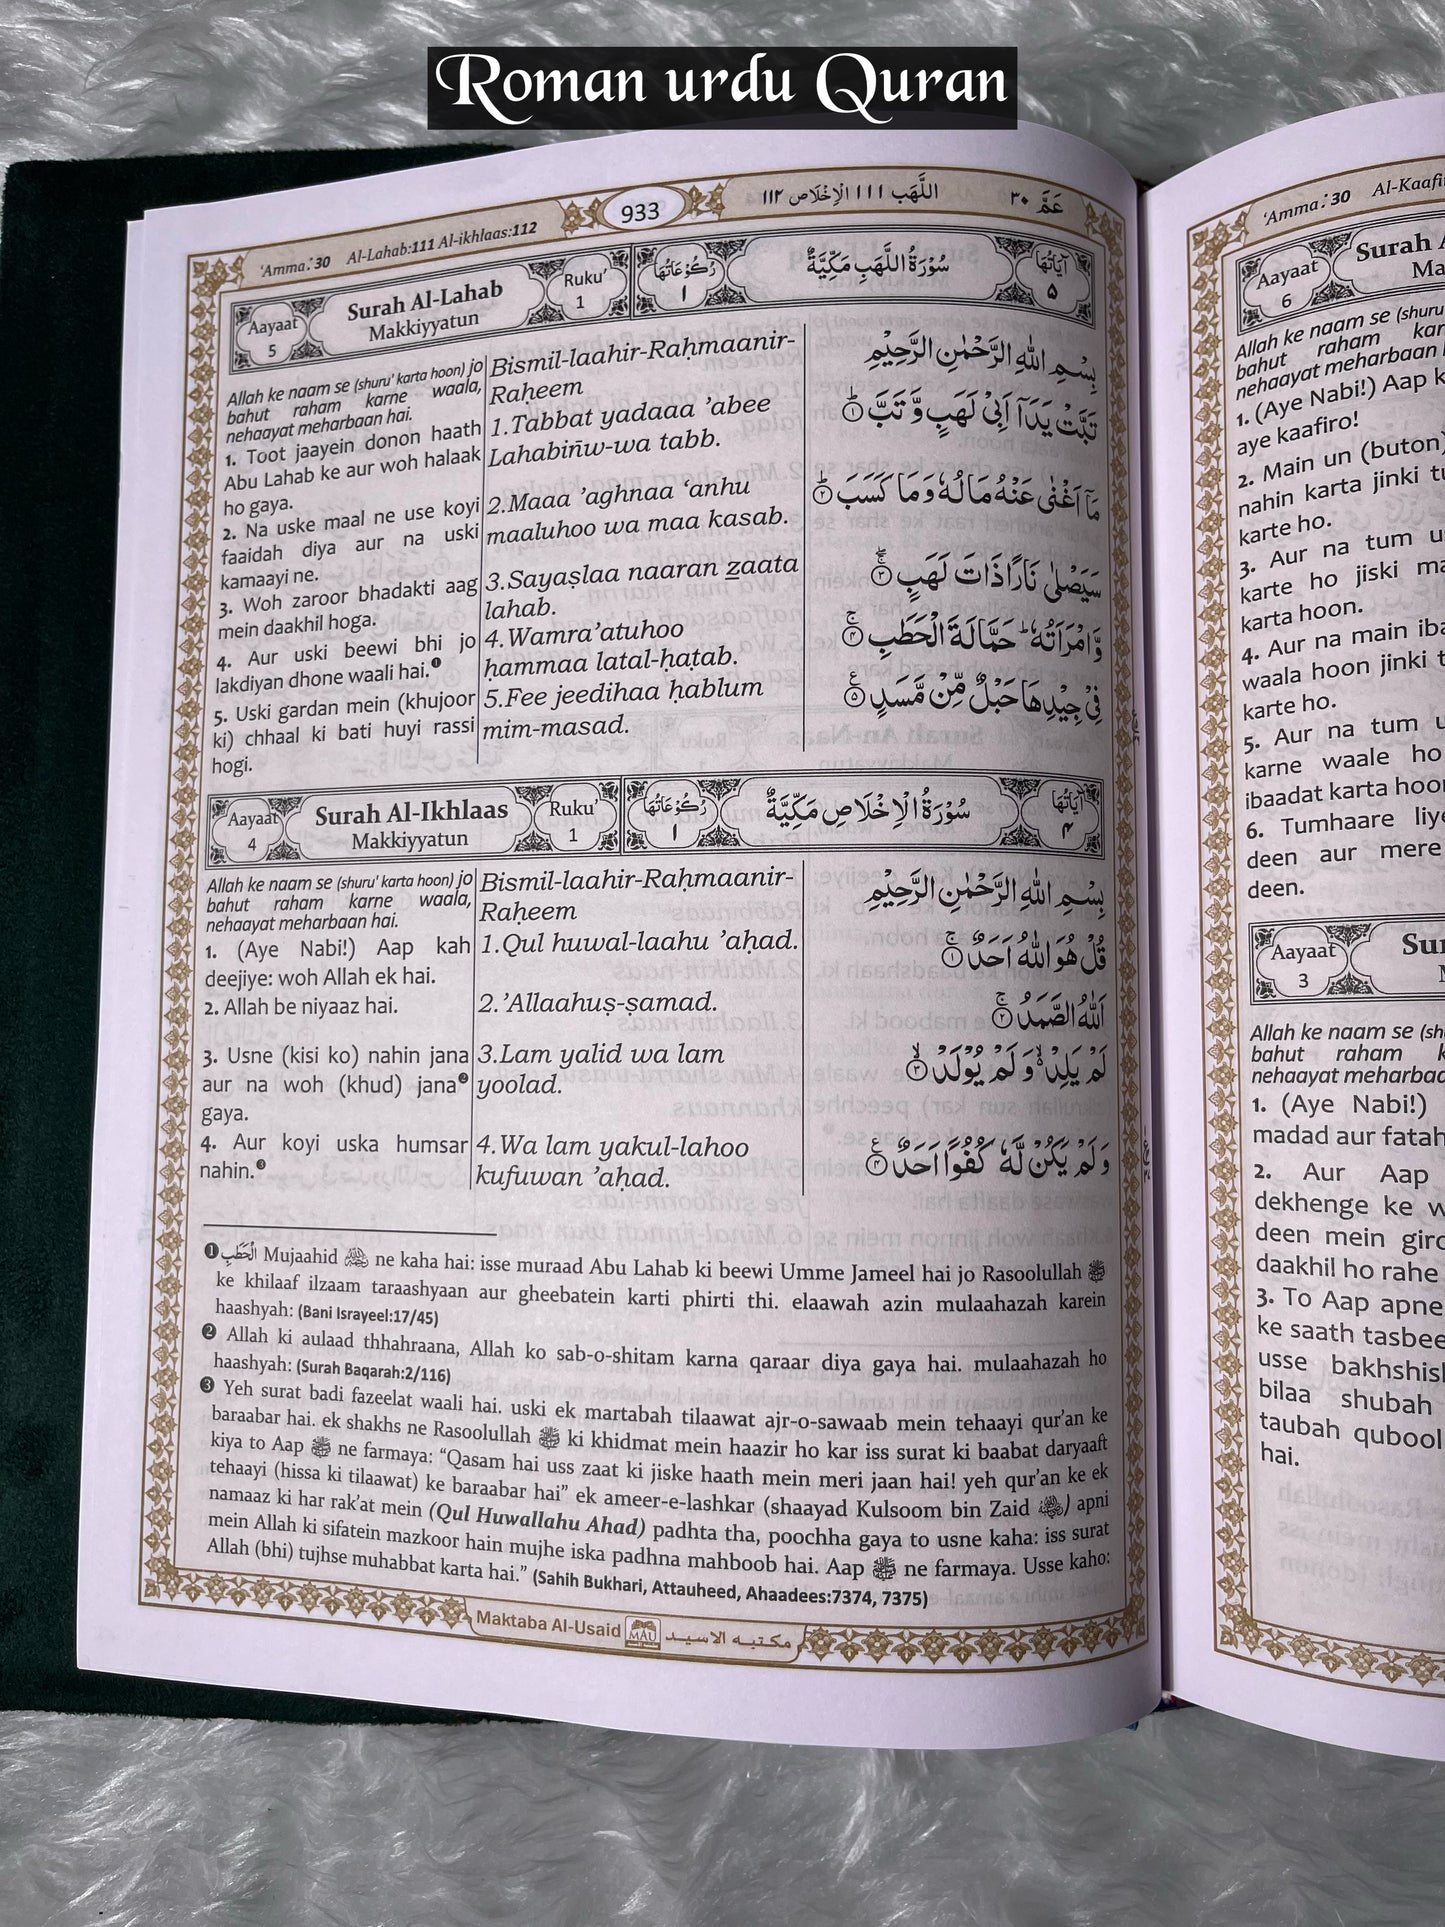 Roman urdu Quran
'Amma: 30 Al-Lahab:111 Al-ikhlaas:112
933
اللَّهَب ١١١ الْاِخْلَاص ١١٢
عَمَّ ٣٠
Aayaat 5
Surah Al-Lahab
Makkiyyatun
Ruku' 1
رُكُوْعَاتُهَا ١
سُوْرَةُ اللَّهَبِ مَكِّيَّةٌ
اٰيَاتُهَا ٥
Allah ke naam se (shuru' karta hoon) jo
bahut raham karne waala,
nehaayat meharbaan hai.
1. Toot jaayein donon haath
Abu Lahab ke aur woh halaak
ho gaya.
2. Na uske maal ne use koyi
faaidah diya aur na uski
kamaayi ne.
3. Woh zaroor bhadakti aag
mein daakhil hoga.
4. Aur uski beewi bhi jo
lakdiyan dhone waali hai.❶
5. Uski gardan mein (khujoor
ki) chhaal ki bati huyi rassi
hogi.
Bismil-laahir-Raḥmaanir-
Raḥeem
1.Tabbat yadaaa ’abee
Lahabiñw-wa tabb.
2.Maaa ’aghnaa ‘anhu
maaluhoo wa maa kasab.
3.Sayaṣlaa naaran z̲aata
lahab.
4.Wamra’atuhoo
ḥammaa latal-ḥaṭab.
5.Fee jeedihaa ḥablum
mim-masad.
بِسْمِ اللهِ الرَّحْمٰنِ الرَّحِيْمِ
تَبَّتْ يَدَآ اَبِيْ لَهَبٍ وَّ تَبَّ ١
مَآ اَغْنٰى عَنْهُ مَالُهٗ وَ مَا كَسَبَ ٢
سَيَصْلٰى نَارًا ذَاتَ لَهَبٍ ٣
وَّ امْرَاَتُهٗ حَمَّالَةَ الْحَطَبِ ٤
فِيْ جِيْدِهَا حَبْلٌ مِّنْ مَّسَدٍ ٥
Aayaat 4
Surah Al-Ikhlaas
Makkiyyatun
Ruku' 1
رُكُوْعَاتُهَا ١
سُوْرَةُ الْاِخْلَاصِ مَكِّيَّةٌ
اٰيَاتُهَا ٤
Allah ke naam se (shuru' karta hoon) jo
bahut raham karne waala,
nehaayat meharbaan hai.
1. (Aye Nabi!) Aap kah
deejiye: woh Allah ek hai.
2. Allah be niyaaz hai.
3. Usne (kisi ko) nahin jana
aur na woh (khud) jana❷
gaya.
4. Aur koyi uska humsar
nahin.❸
Bismil-laahir-Raḥmaanir-
Raḥeem
1.Qul huwal-laahu ’aḥad.
2.’Allaahuṣ-ṣamad.
3.Lam yalid wa lam
yoolad.
4.Wa lam yakul-lahoo
kufuwan ’aḥad.
بِسْمِ اللهِ الرَّحْمٰنِ الرَّحِيْمِ
قُلْ هُوَ اللهُ اَحَدٌ ١
اَللهُ الصَّمَدُ ٢
لَمْ يَلِدْ وَ لَمْ يُوْلَدْ ٣
وَ لَمْ يَكُنْ لَّهٗ كُفُوًا اَحَدٌ ٤
❶ الْحَطَبِ Mujaahid ne kaha hai: isse muraad Abu Lahab ki beewi Umme Jameel hai jo Rasoolullah ﷺ
ke khilaaf ilzaam taraashyaan aur gheebatein karti phirti thi. elaawah azin mulaahazah karein
haashyah: (Bani Israyeel:17/45)
❷ Allah ki aulaad thhahraana, Allah ko sab-o-shitam karna qaraar diya gaya hai. mulaahazah ho
haashyah: (Surah Baqarah:2/116)
❸ Yeh surat badi fazeelat waali hai. uski ek martabah tilaawat ajr-o-sawaab mein tehaayi qur'an ke
baraabar hai. ek shakhs ne Rasoolullah ﷺ ki khidmat mein haazir ho kar iss surat ki baabat daryaaft
kiya to Aap ﷺ ne farmaya: “Qasam hai uss zaat ki jiske haath mein meri jaan hai! yeh qur'an ke ek
tehaayi (hissa ki tilaawat) ke baraabar hai” ek ameer-e-lashkar (shaayad Kulsoom bin Zaid ) apni
namaaz ki har rak'at mein (Qul Huwallahu Ahad) padhta tha, poochha gaya to usne kaha: iss surat
mein Allah ki sifatein mazkoor hain mujhe iska padhna mahboob hai. Aap ﷺ ne farmaya. Usse kaho:
Allah (bhi) tujhse muhabbat karta hai.” (Sahih Bukhari, Attauheed, Ahaadees:7374, 7375)
Maktaba Al-Usaid MAU مكتبه الاسيد
'Amma: 30 Al-Kaafi
Aayaat 6
Surah A
Ma
Allah ke naam se (shuru
bahut raham kar
nehaayat meharbaan
1. (Aye Nabi!) Aap k
aye kaafiro!
2. Main un (buton)
nahin karta jinki tu
karte ho.
3. Aur na tum u
karte ho jiski ma
karta hoon.
4. Aur na main iba
waala hoon jinki t
karte ho.
5. Aur na tum u
karne waale ho
ibaadat karta hoon
6. Tumhaare liye
deen aur mere
deen.
Aayaat 3
Sur
M
Allah ke naam se (sh
bahut raham k
nehaayat meharbaa
1. (Aye Nabi!)
madad aur fatah
2. Aur Aap
dekhenge ke w
deen mein giro
daakhil ho rahe
3. To Aap apne
ke saath tasbee
usse bakhshish
bilaa shubah
taubah qubool
hai.